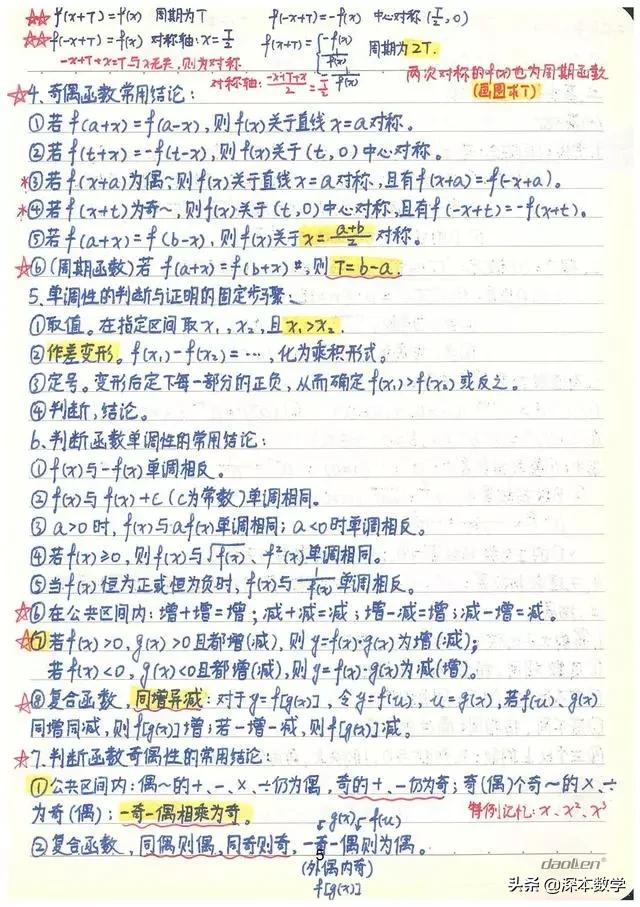 ☆☆ f(x+T)=f(x) 周期为T f(-x+T)=-f(x) 中心对称 (T/2,0)
☆☆ f(-x+T)=f(x) 对称轴:x=T/2 f(x+T)={-f(x) 1/f(x) -1/f(x) 周期为2T.
-x+T+x=T与x无关,则为对称. 对称轴: (-x+T+x)/2=T/2 两次对称的f(x)也为周期函数
(画图求T)
☆4、奇偶函数常用结论:
①若f(a+x)=f(a-x),则f(x)关于直线x=a对称。
②若f(t+x)=-f(t-x),则f(x)关于(t,0)中心对称。
*③若f(x+a)为偶~则f(x)关于直线x=a对称,且有f(x+a)=f(-x+a)。
*④若f(x+t)为奇~,则f(x)关于(t,0)中心对称,且有f(-x+t)=-f(x+t)。
⑤若f(a+x)=f(b-x),则f(x)关于x=(a+b)/2对称。
☆⑥(周期函数)若f(a+x)=f(b+x),则T=b-a.
5、单调性的判断与证明的固定步骤:
①取值。在指定区间取x₁,x₂,且x₁>x₂.
②作差变形。f(x₁)-f(x₂)=…,化为乘积形式。
③定号。变形后定下每一部分的正负,从而确定f(x₁)>f(x₂)或反之。
④判断,结论。
6、判断函数单调性的常用结论:
①f(x)与-f(x)单调相反。
②f(x)与f(x)+c(c为常数)单调相同。
③a>0时,f(x)与af(x)单调相同;a<0时单调相反。
④若f(x)≥0,则f(x)与√f(x)、f²(x)单调相同。
⑤当f(x)恒为正或恒为负时,f(x)与1/f(x)单调相反。
☆⑥在公共区间内:增+增=增;减+减=减;增-减=增;减-增=减。
☆⑦若f(x)>0,g(x)>0且都增(减),则y=f(x)·g(x)为增(减);
若f(x)<0,g(x)<0且都增(减),则y=f(x)·g(x)为减(增)。
☆⑧复合函数,同增异减:对于y=f[g(x)],令y=f(u),u=g(x),若f(u)、g(x)
同增同减,则f[g(x)]增;若一增一减,则f[g(x)]减。
☆7、判断函数奇偶性的常用结论:
①公共区间内:偶~的+、-、×、÷仍为偶,奇的+、-仍为奇;奇(偶)个奇~的×、÷
为奇(偶);一奇一偶相乘为奇。 特例记忆:x、x²、x³
g(x) f(u)
②复合函数,同偶则偶,同奇则奇,一奇一偶则为偶。
5
(外偶内奇)
f[g(x)]
daolLen®
头条 @深本数学